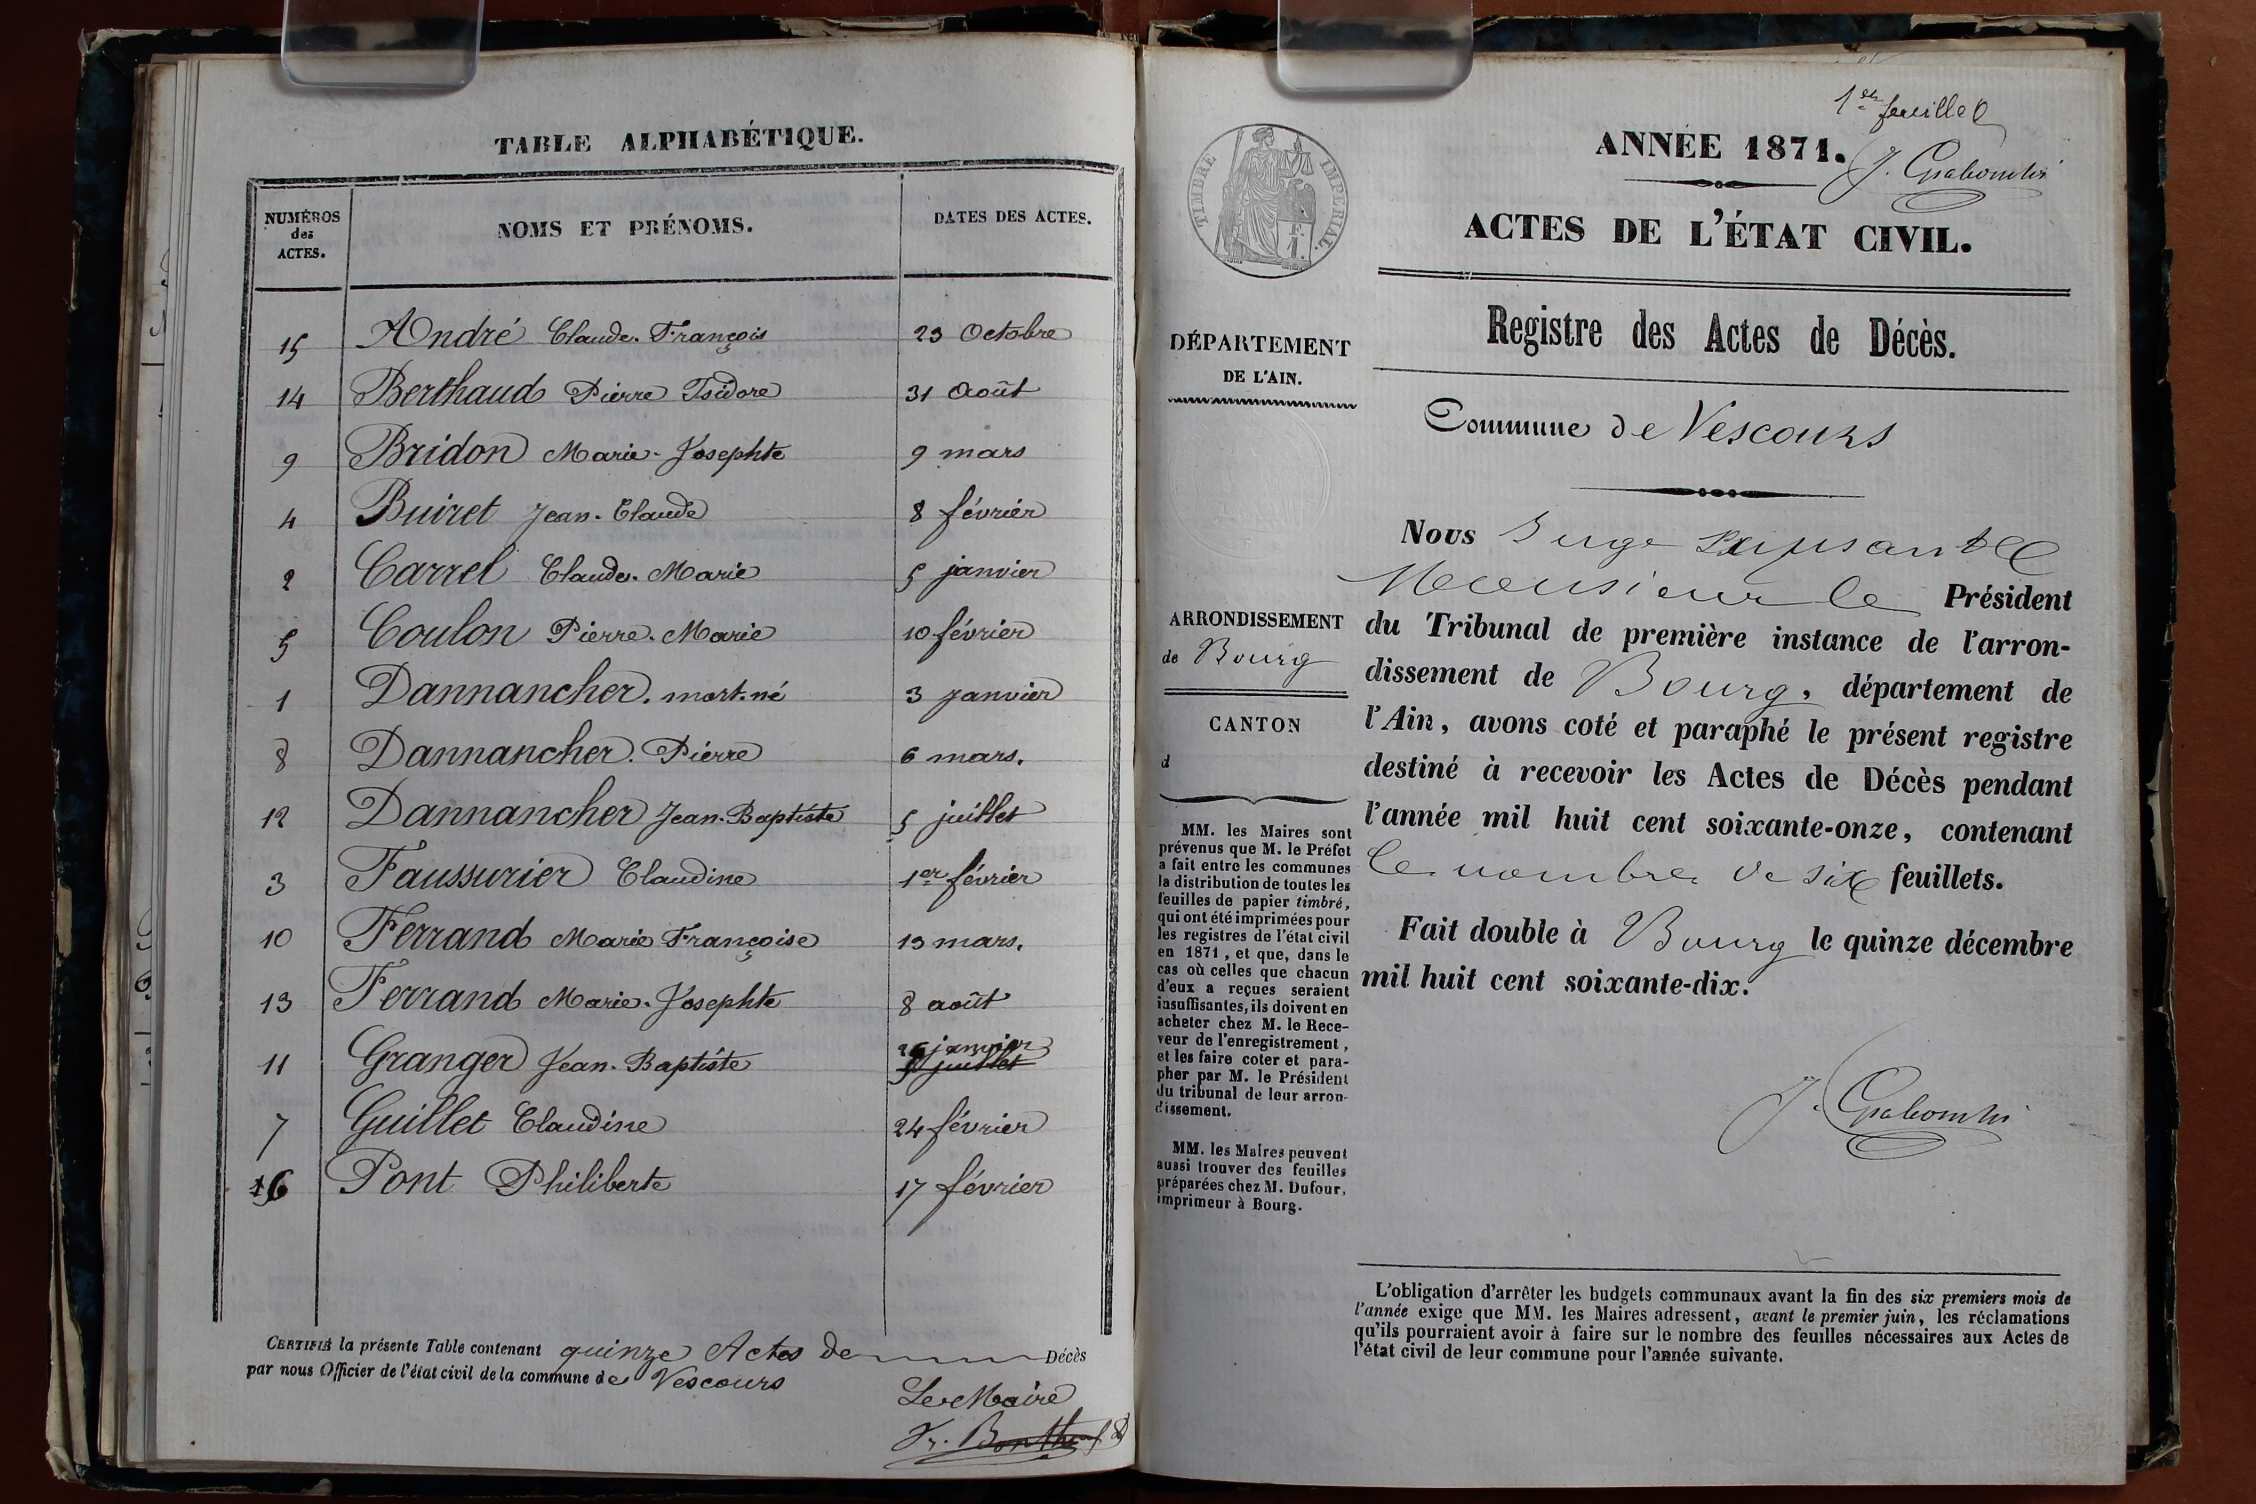 TABLE ALPHABÉTIQUE.
NUMÉROS des ACTES. NOMS ET PRÉNOMS. DATES DES ACTES.
15 André Claude-François 23 Octobre
14 Berthaud Pierre Isidore 31 Août
9 Bridon Marie-Josephte 9 mars
4 Buiret Jean-Claude 8 février
2 Carrel Claude-Marie 5 janvier
5 Coulon Pierre-Marie 10 février
1 Dannancher. mort-né 3 janvier
8 Dannancher. Pierre 6 mars.
12 Dannancher Jean-Baptiste 5 juillet
3 Faussurier Claudine 1er février
10 Ferrand Marie Françoise 13 mars.
13 Ferrand Marie-Josephte 8 août
11 Granger Jean-Baptiste 26 janvier
juillet
7 Guillet Claudine 24 février
6 Pont Philiberte 17 février
CERTIFIÉ la présente Table contenant quinze Actes de Décès
par nous Officier de l'état civil de la commune de Vescours
Le Maire
1er feuillet
TIMBRE IMPÉRIAL.
F. 1.
ANNÉE 1871.
ACTES DE L'ÉTAT CIVIL.
Registre des Actes de Décès.
DÉPARTEMENT
DE L'AIN.
Commune de Vescours
ARRONDISSEMENT
de Bourg
CANTON
d
MM. les Maires sont
prévenus que M. le Préfet
a fait entre les communes
la distribution de toutes les
feuilles de papier timbré,
qui ont été imprimées pour
les registres de l'état civil
en 1871, et que, dans le
cas où celles que chacun
d'eux a reçues seraient
insuffisantes, ils doivent en
acheter chez M. le Rece-
veur de l'enregistrement,
et les faire coter et para-
pher par M. le Président
du tribunal de leur arron-
dissement.
MM. les Maires peuvent
aussi trouver des feuilles
préparées chez M. Dufour,
imprimeur à Bourg.
Nous Juge
Monsieur le Président
du Tribunal de première instance de l'arron-
dissement de Bourg, département de
l'Ain, avons coté et paraphé le présent registre
destiné à recevoir les Actes de Décès pendant
l'année mil huit cent soixante-onze, contenant
le nombre de six feuillets.
Fait double à Bourg le quinze décembre
mil huit cent soixante-dix.
L'obligation d'arrêter les budgets communaux avant la fin des six premiers mois de
l'année exige que MM. les Maires adressent, avant le premier juin, les réclamations
qu'ils pourraient avoir à faire sur le nombre des feuilles nécessaires aux Actes de
l'état civil de leur commune pour l'année suivante.